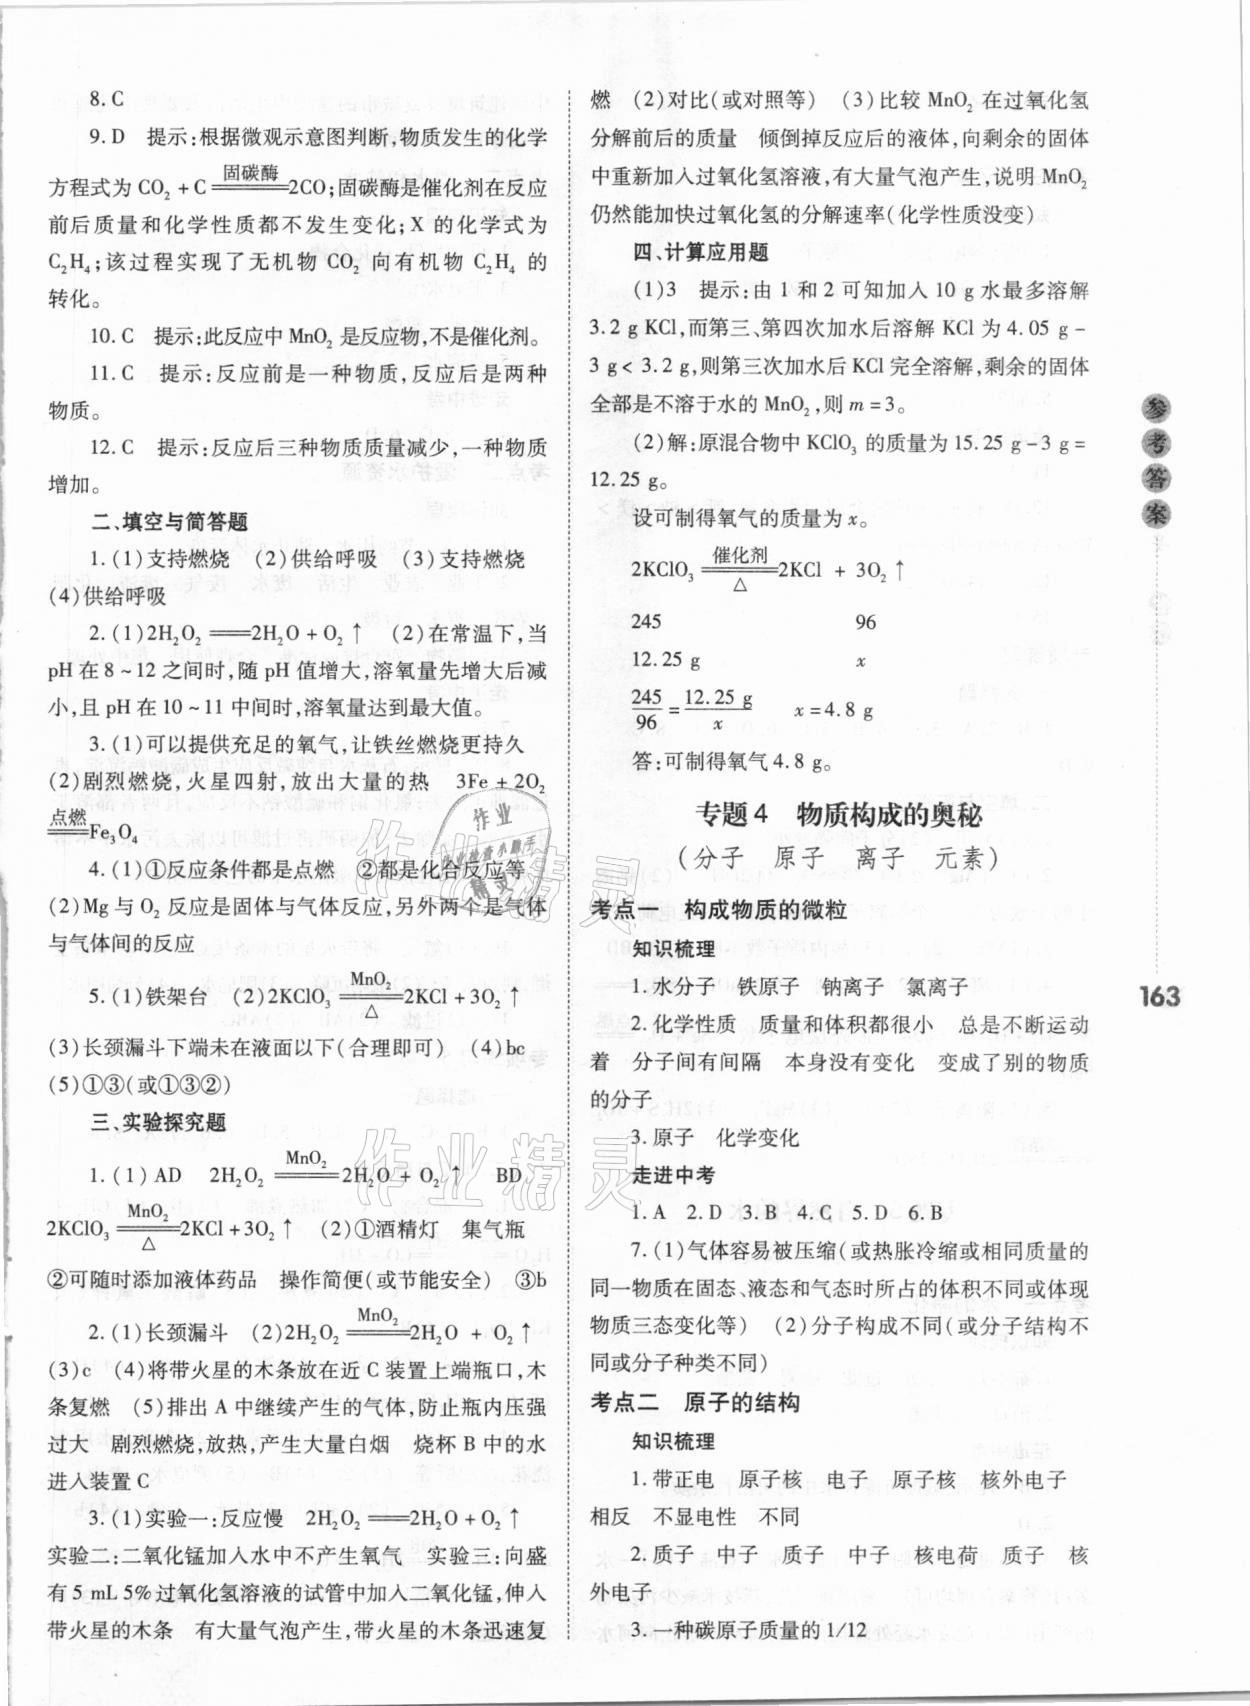 8. C
9. D　提示:根据微观示意图判断,物质发生的化学
方程式为 CO₂ + C ══固碳酶══ 2CO;固碳酶是催化剂在反应
前后质量和化学性质都不发生变化;X 的化学式为
C₂H₄;该过程实现了无机物 CO₂ 向有机物 C₂H₄ 的
转化。
10. C　提示:此反应中 MnO₂ 是反应物,不是催化剂。
11. C　提示:反应前是一种物质,反应后是两种
物质。
12. C　提示:反应后三种物质质量减少,一种物质
增加。
二、填空与简答题
1. (1)支持燃烧　(2)供给呼吸　(3)支持燃烧
(4)供给呼吸
2. (1)2H₂O₂ ═══ 2H₂O + O₂↑　(2)在常温下,当
pH 在 8 ~ 12 之间时,随 pH 值增大,溶氧量先增大后减
小,且 pH 在 10 ~ 11 中间时,溶氧量达到最大值。
3. (1)可以提供充足的氧气,让铁丝燃烧更持久
(2)剧烈燃烧,火星四射,放出大量的热　3Fe + 2O₂
══点燃══ Fe₃O₄
4. (1)①反应条件都是点燃　②都是化合反应等
(2)Mg 与 O₂ 反应是固体与气体反应,另外两个是气体
与气体间的反应
5. (1)铁架台　(2)2KClO₃ ══MnO₂/△══ 2KCl + 3O₂↑
(3)长颈漏斗下端未在液面以下(合理即可)　(4)bc
(5)①③(或①③②)
三、实验探究题
1. (1) AD　2H₂O₂ ══MnO₂══ 2H₂O + O₂↑　BD
2KClO₃ ══MnO₂/△══ 2KCl + 3O₂↑　(2)①酒精灯　集气瓶
②可随时添加液体药品　操作简便(或节能安全)　③b
2. (1)长颈漏斗　(2)2H₂O₂ ══MnO₂══ 2H₂O + O₂↑
(3)c　(4)将带火星的木条放在近 C 装置上端瓶口,木
条复燃　(5)排出 A 中继续产生的气体,防止瓶内压强
过大　剧烈燃烧,放热,产生大量白烟　烧杯 B 中的水
进入装置 C
3. (1)实验一:反应慢　2H₂O₂ ═══ 2H₂O + O₂↑
实验二:二氧化锰加入水中不产生氧气　实验三:向盛
有 5 mL 5%过氧化氢溶液的试管中加入二氧化锰,伸入
带火星的木条　有大量气泡产生,带火星的木条迅速复
燃　(2)对比(或对照等)　(3)比较 MnO₂ 在过氧化氢
分解前后的质量　倾倒掉反应后的液体,向剩余的固体
中重新加入过氧化氢溶液,有大量气泡产生,说明 MnO₂
仍然能加快过氧化氢的分解速率(化学性质没变)
四、计算应用题
(1)3　提示:由 1 和 2 可知加入 10 g 水最多溶解
3.2 g KCl,而第三、第四次加水后溶解 KCl 为 4.05 g -
3 g < 3.2 g,则第三次加水后 KCl 完全溶解,剩余的固体
全部是不溶于水的 MnO₂,则 m = 3。
(2)解:原混合物中 KClO₃ 的质量为 15.25 g - 3 g =
12.25 g。
设可制得氧气的质量为 x。
2KClO₃ ══催化剂/△══ 2KCl + 3O₂↑
245　96
12.25 g　x
245/96 = 12.25 g/x　x = 4.8 g
答:可制得氧气 4.8 g。
专题 4　物质构成的奥秘
(分子　原子　离子　元素)
考点一　构成物质的微粒
知识梳理
1. 水分子　铁原子　钠离子　氯离子
2. 化学性质　质量和体积都很小　总是不断运动
着　分子间有间隔　本身没有变化　变成了别的物质
的分子
3. 原子　化学变化
走进中考
1. A　2. D　3. B　4. C　5. D　6. B
7. (1)气体容易被压缩(或热胀冷缩或相同质量的
同一物质在固态、液态和气态时所占的体积不同或体现
物质三态变化等)　(2)分子构成不同(或分子结构不
同或分子种类不同)
考点二　原子的结构
知识梳理
1. 带正电　原子核　电子　原子核　核外电子
相反　不显电性　不同
2. 质子　中子　质子　中子　核电荷　质子　核
外电子
3. 一种碳原子质量的 1/12
参考答案
163
作业精灵
作业精灵
作业
作业检查小助手
精灵